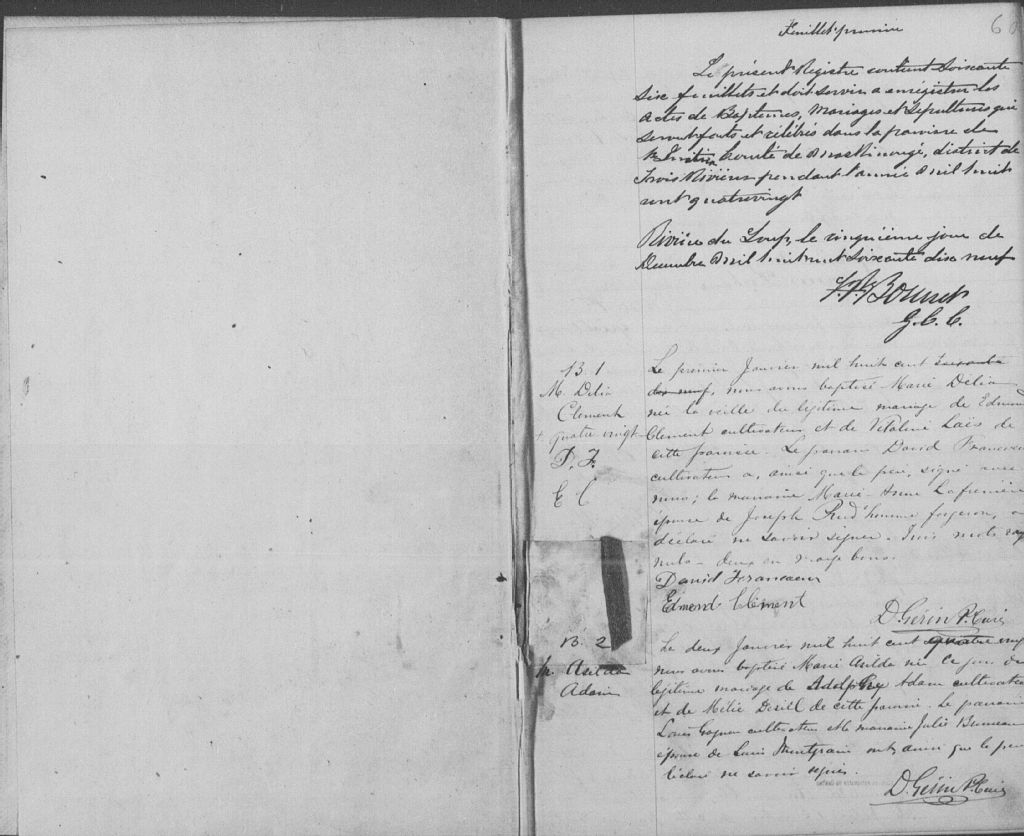 Feuillet premier
6
Le présent Registre contient soixante
six feuillets et doit servir a enregistrer les
actes de Baptemes, Mariages et Sépultures qui
seront faits et célébrés dans la paroisse de
Comté de Maskinongé, district de
Trois Rivières pendant l'année Mil huit
cent quatrevingt
Rivière du Loup, le cinquième jour de
Decembre Mil huit cent soixante dix neuf
G. C. C.
B. 1
M. Délia
Clement
+ quatre vingt
D. F.
E C
Le premier Janvier mil huit cent soixante
dix neuf, nous avons baptisé Marie Délia
née la veille du légitime mariage de Edmond
Clement cultivateur et de de
cette paroisse. Le parrain David Francoeur
cultivateur a, ainsi que le père, signé avec
nous; la marraine Marie-Anne Lafrenière
épouse de Joseph Prud'homme forgeron, a
déclaré ne savoir signer. Trois mots rayés
nuls - deux en marge bons.
David Francoeur
Edmond Clement
D. Gérin Ptre Curé
B. 2
M. Asilda
Adam
Le deux Janvier mil huit cent quatre vingt
nous avons baptisé Marie Asilda née ce jour du
légitime mariage de Adolphe Adam cultivateur
et de de cette paroisse. Le parrain
Louis Gagnon cultivateur et la marraine Julie
épouse de Louis ont ainsi que le père
déclaré ne savoir signer.
D. Gérin Ptre Curé